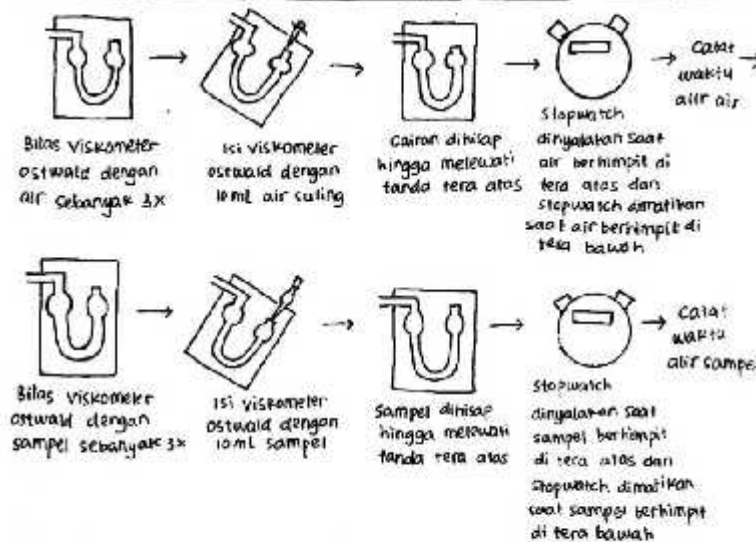 Bilas Viskometer
ostwald dengan
air sebanyak 3x
Isi viskometer
ostwald dengan
10 ml air suling
Cairan dihisap
hingga melewati
tanda tera atas
Stopwatch
dinyalakan saat
air berhimpit di
tera atas dan
Stopwatch dimatikan
saat air berhimpit di
tera bawah
Catat
waktu
alir air
Bilas Viskometer
ostwald dengan
sampel sebanyak 3x
Isi viskometer
ostwald dengan
10 ml sampel
Sampel dihisap
hingga melewati
tanda tera atas
Stopwatch
dinyalakan saat
sampel berhimpit
di tera atas dan
Stopwatch dimatikan
saat sampel berhimpit
di tera bawah
Catat
waktu
alir sampel